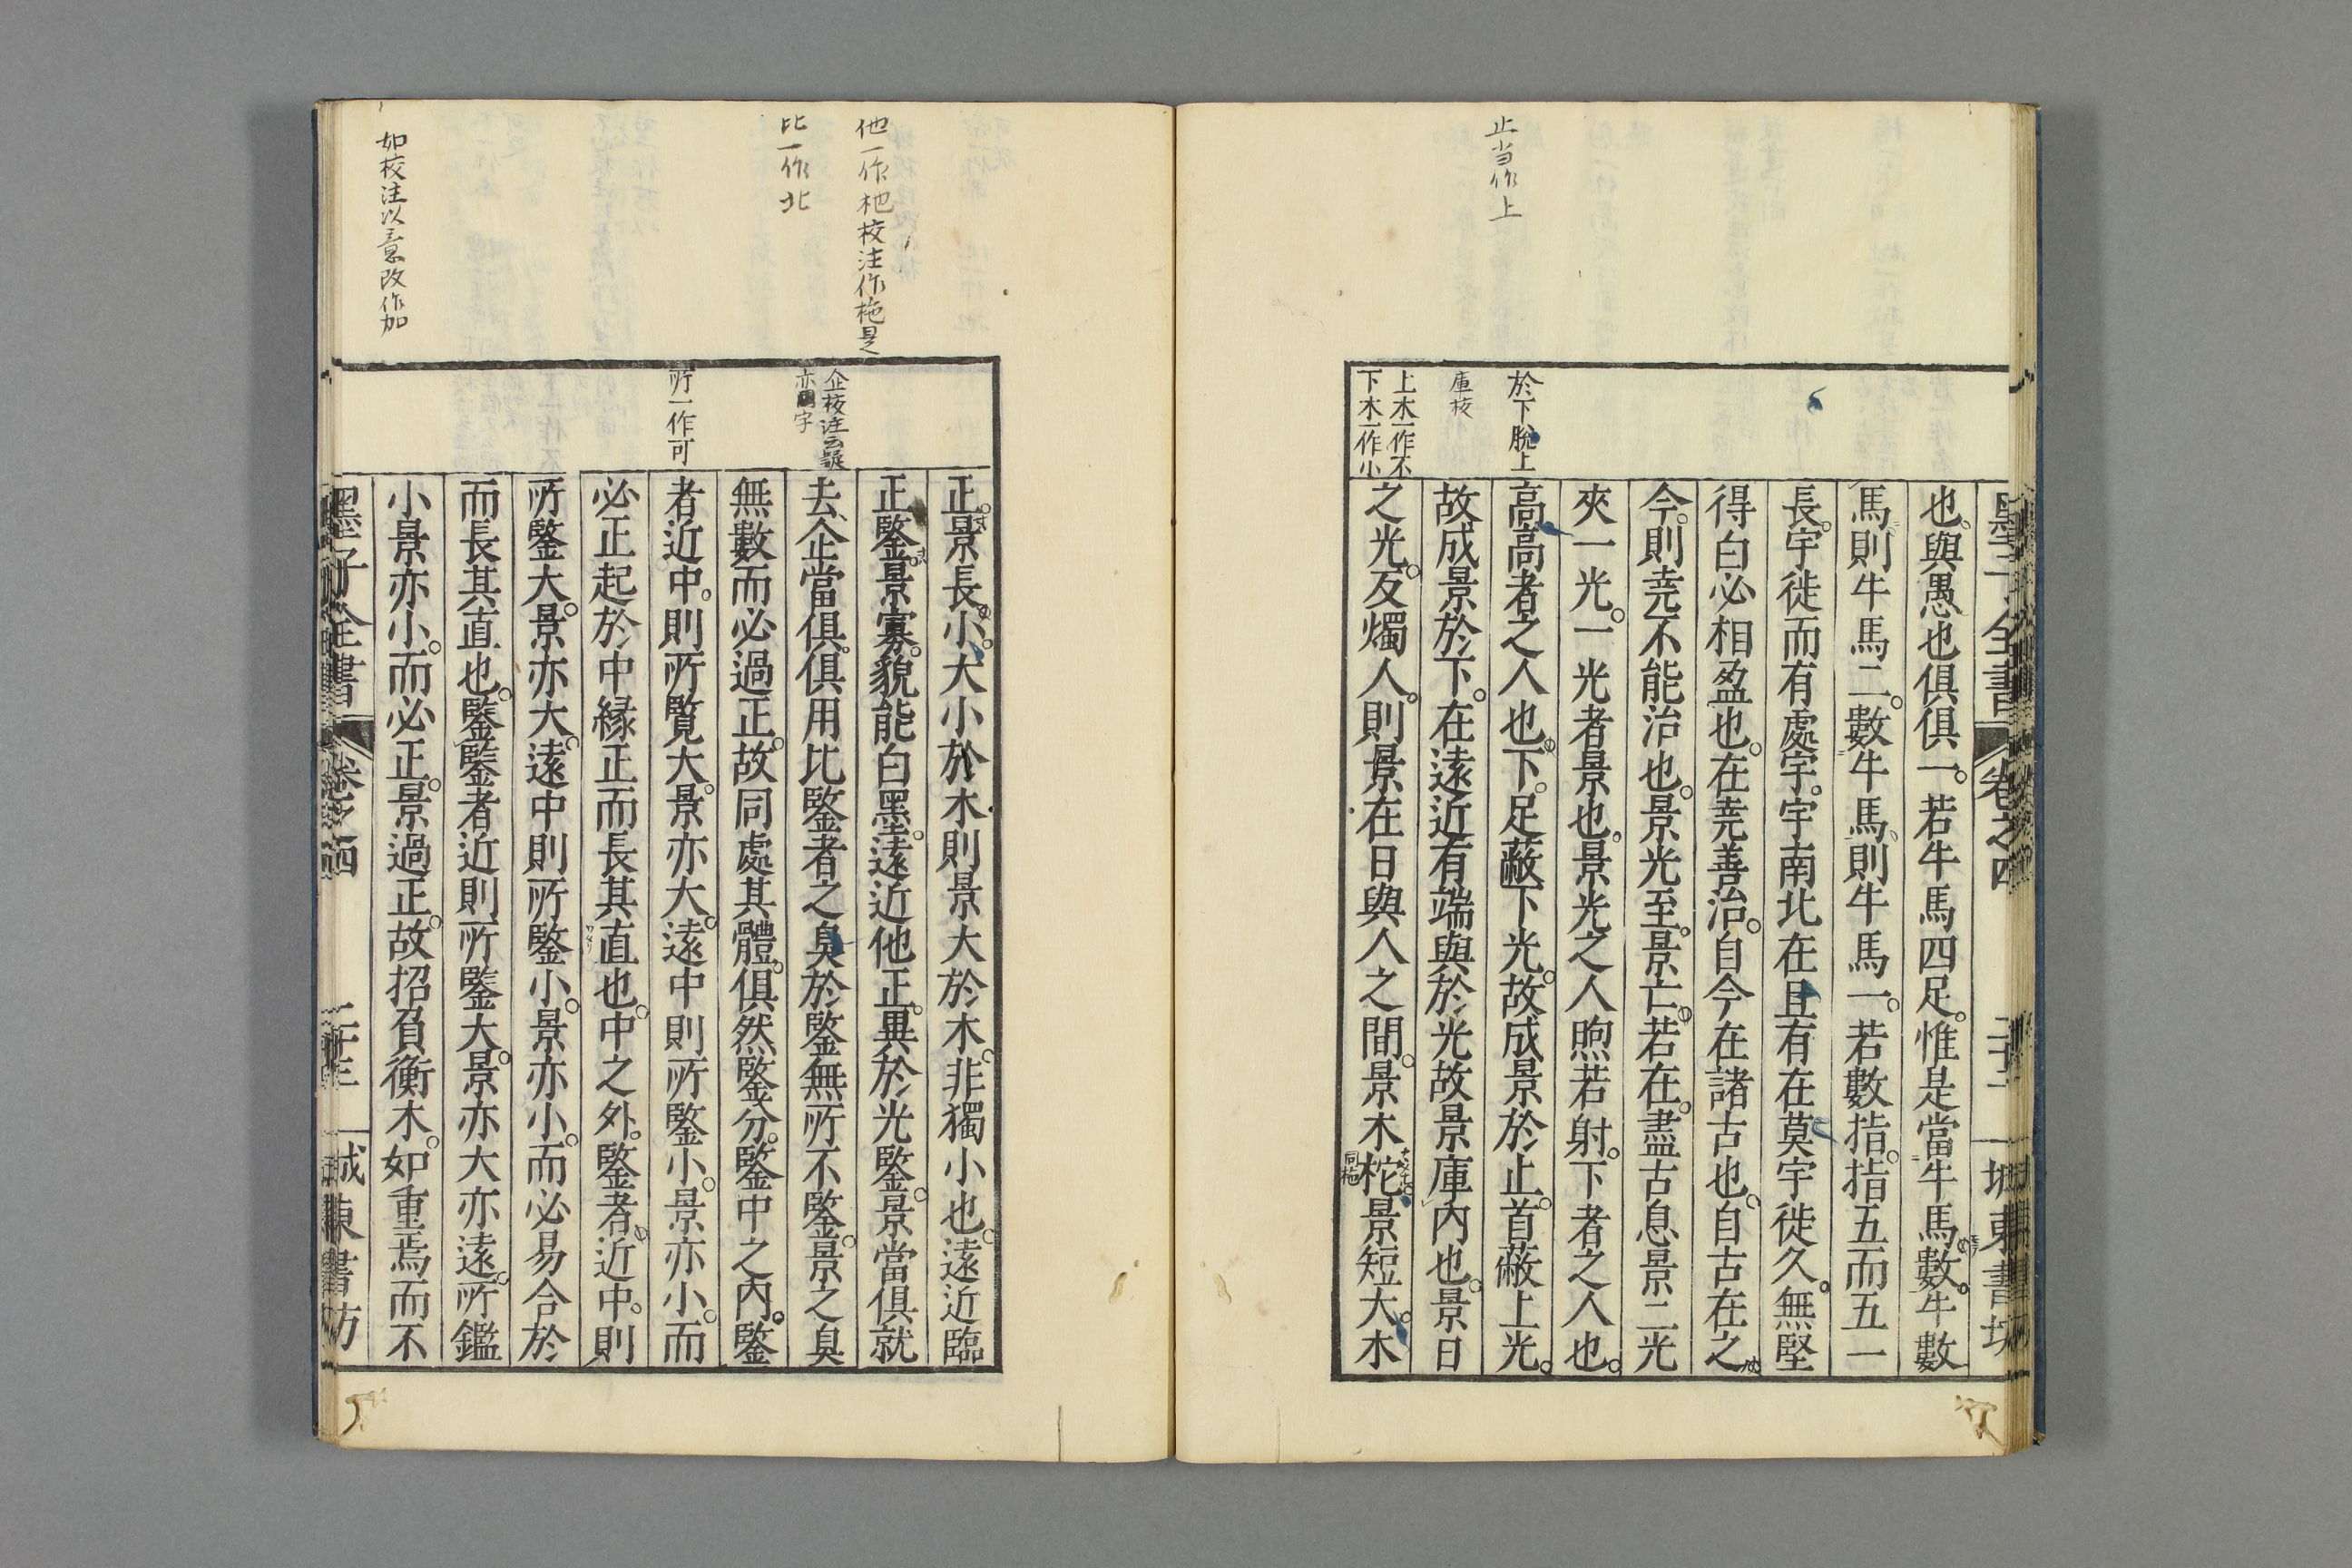 墨子全書 卷之四 城東書坊
也與愚也俱俱一若牛馬四足惟是當牛馬數牛數
馬則牛馬二數牛馬則牛馬一若數指指五而五一
長宇徙而有處宇宇南北在且有在莫宇徙久無堅
得白必相盈也在堯善治自今在諸古也自古在之
今則堯不能治也景光至景亡若在盡古息景二光
夾一光一光者景也景光之人煦若射下者之人也
高高者之人也下足蔽下光故成景於止首蔽上光
故成景於下在遠近有端與於光故景庫內也景日
之光反燭人則景在日與人之間景木柁景短大木
同柂
止当作上
於下脫上
庫校
上木一作不
下木一作小
正景長小大小於木則景大於木非獨小也遠近臨
正鑒景寡貌能白黑遠近他正異於光鑒景當俱就
去尒當俱俱用比鑒者之臭於鑒無所不鑒景之臭
無數而必過正故同處其體俱然鑒分鑒中之內鑒
者近中則所覽大景亦大遠中則所鑒小景亦小而
必正起於中緣正而長其直也中之外鑒者近中則
所鑒大景亦大遠中則所鑒小景亦小而必易合於
而長其直也鑒鑒者近則所鑒大景亦大亦遠所鑑
小景亦小而必正景過正故招負衡木如重焉而不
墨子全書 卷之四 二十三 城東書坊
他一作杝校注作柂是
比一作北
企校注云疑
亦字
所一作可
如校注以意改作加